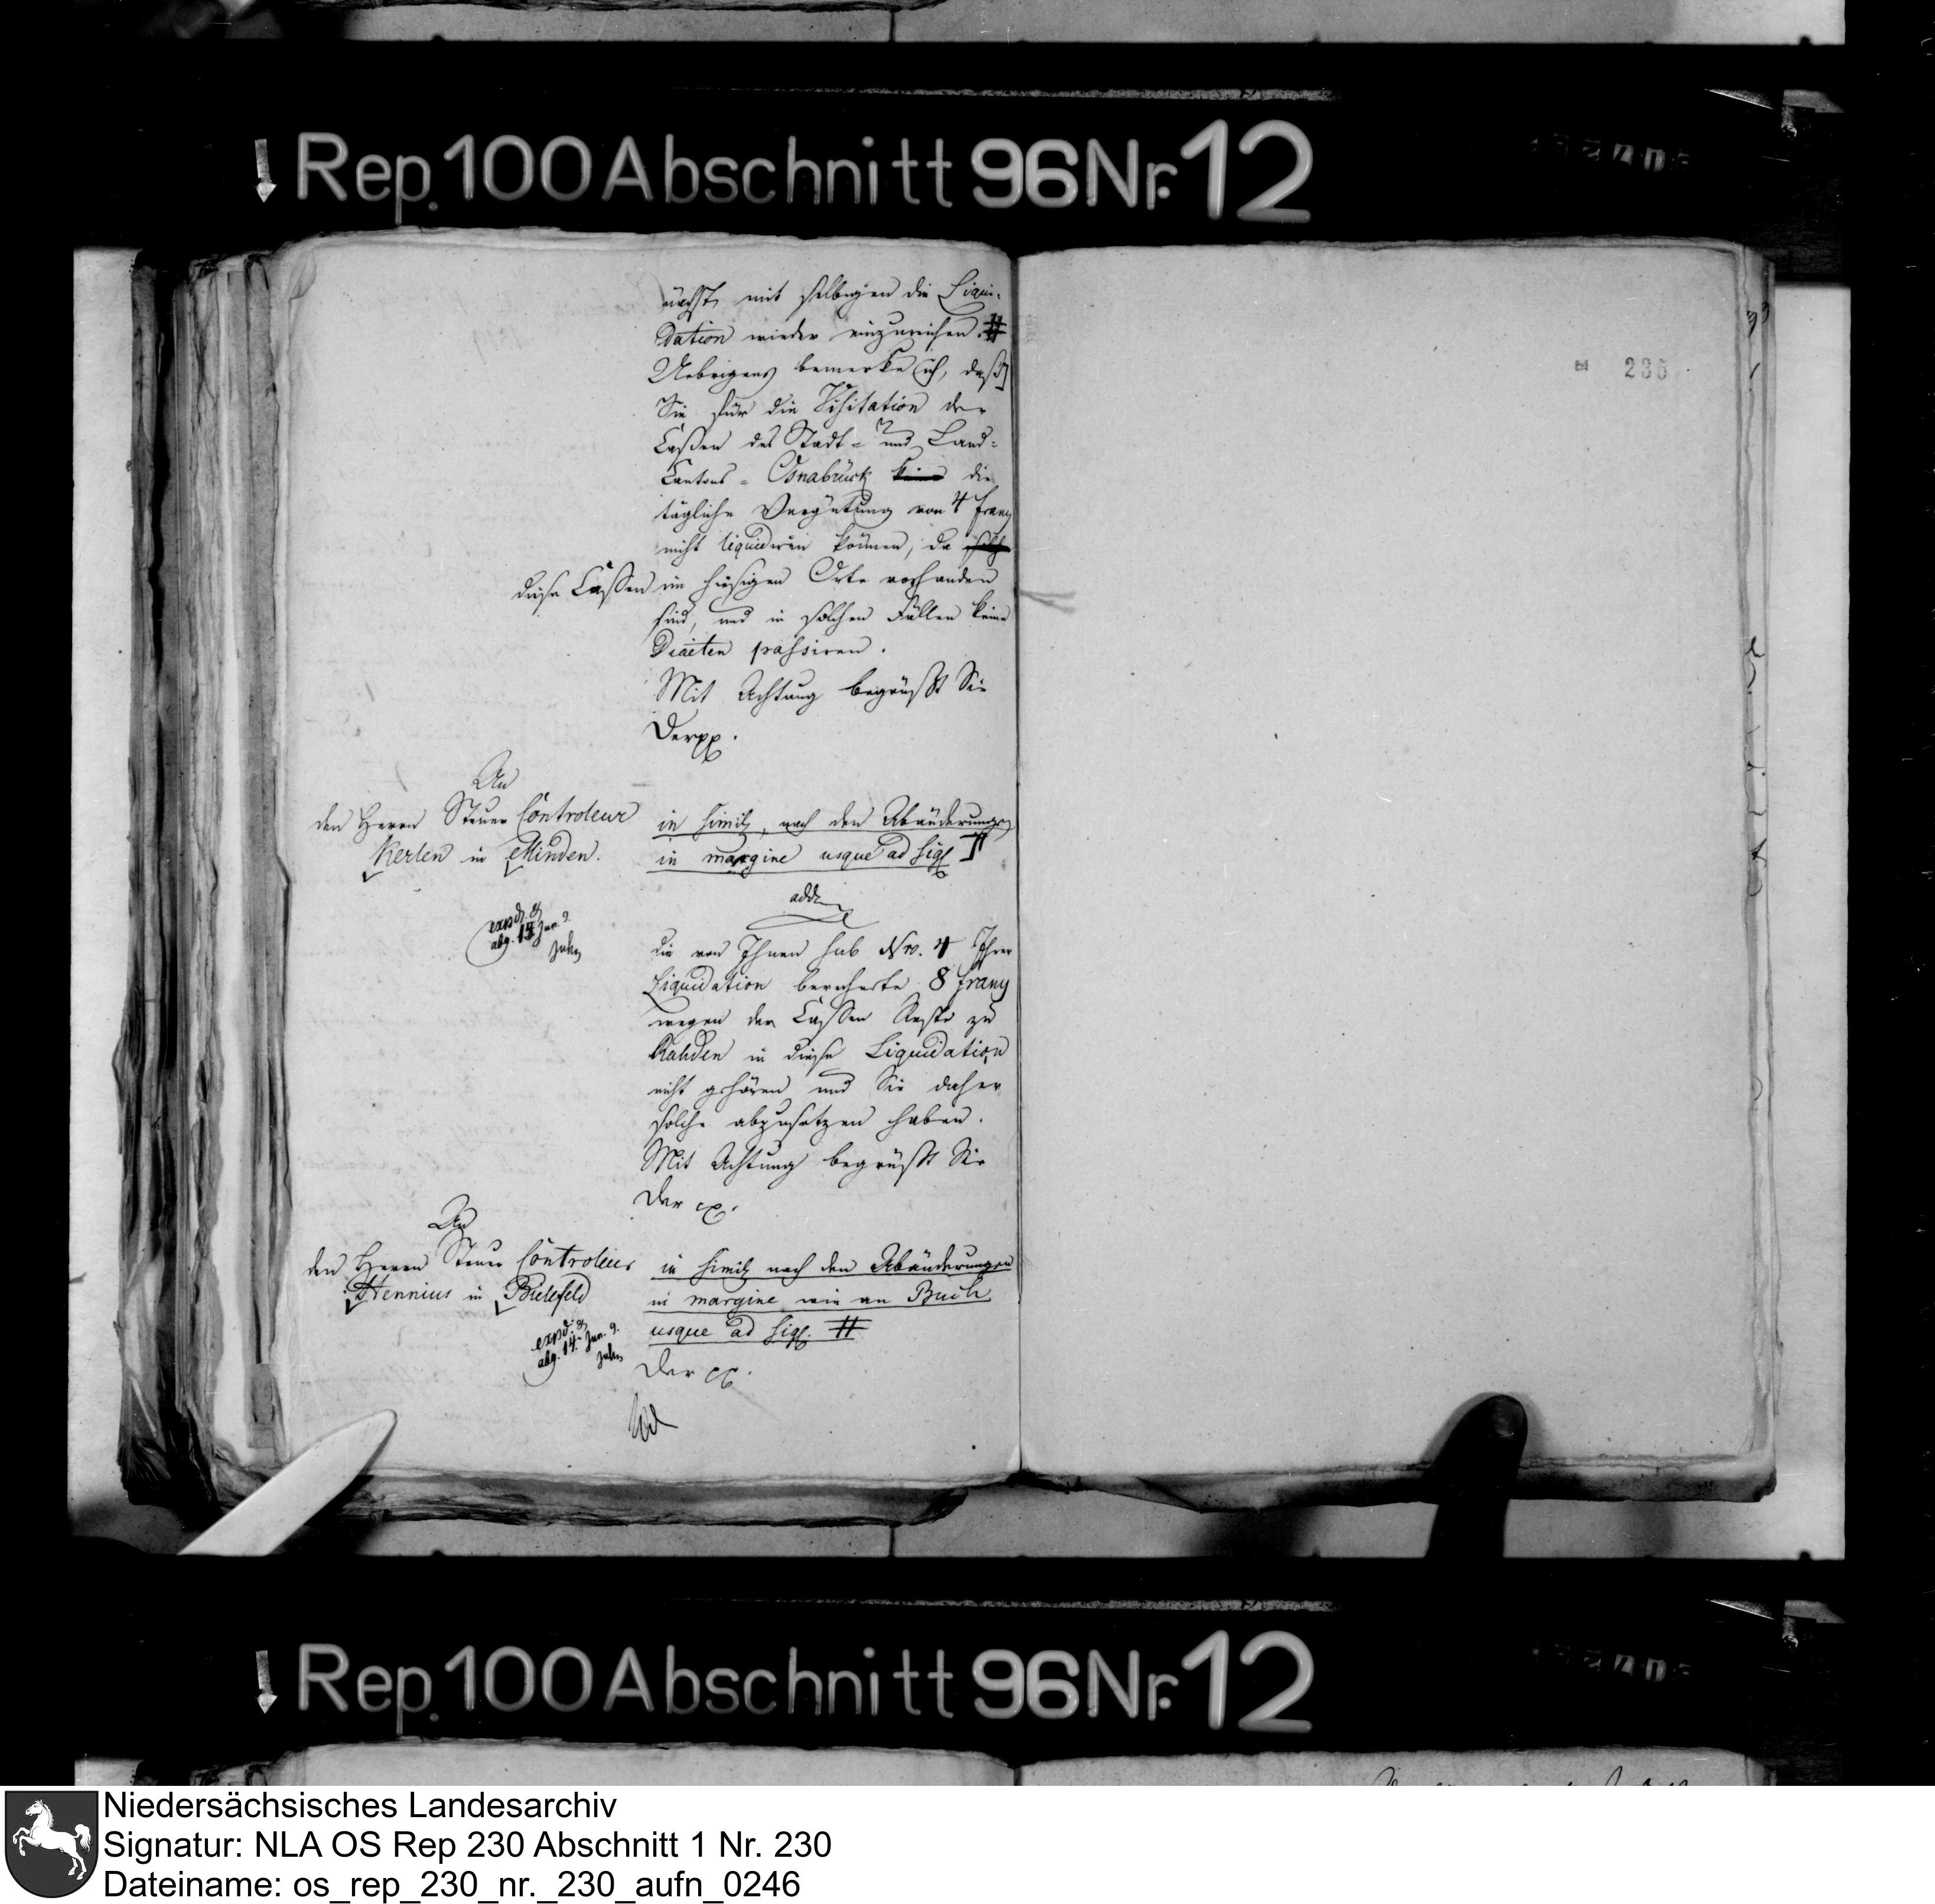 Rep. 100 Abschnitt 96 Nr. 12
nächst mit selbigen die Liqui-
dation wieder einzureichen. #
Uebrigens bemerke ich, daß
Sie für die Visitation der
Cassen des Stadt- und Land-
Cantons-Osnabrück keine die
tägliche Vergütung von 4 Franc
nicht liquidiren können, da
diese Cassen im hiesigen Orte vorhanden
sind, und in solchen Fällen keine
Diaeten passiren.
Mit Achtung begrüßt Sie
Der pp.
An
den Herrn Steuer Controleur
Kerlen in Minden.
in simili, nach den Abänderungen
in margine usque ad sig.
expd. &
abg. 15 Jun. 9.
add.
die von Ihnen sub Nro. 4 Ihrer
Liquidation berechnete 8 Franc
wegen der Cassen Reste zu
Rahden in diese Liquidation
nicht gehören und Sie daher
solche abzusetzen haben.
Mit Achtung begrüßt Sie
Der pp.
An
den Herrn Steuer Controleur
Hennius in Bielefeld
in simili nach den Abänderungen
in margine wie an
usque ad sig. #
expd. &
abg. 14. Jun. 9.
Der pp.
235
Rep. 100 Abschnitt 96 Nr. 12
Niedersächsisches Landesarchiv
Signatur: NLA OS Rep 230 Abschnitt 1 Nr. 230
Dateiname: os_rep_230_nr._230_aufn_0246